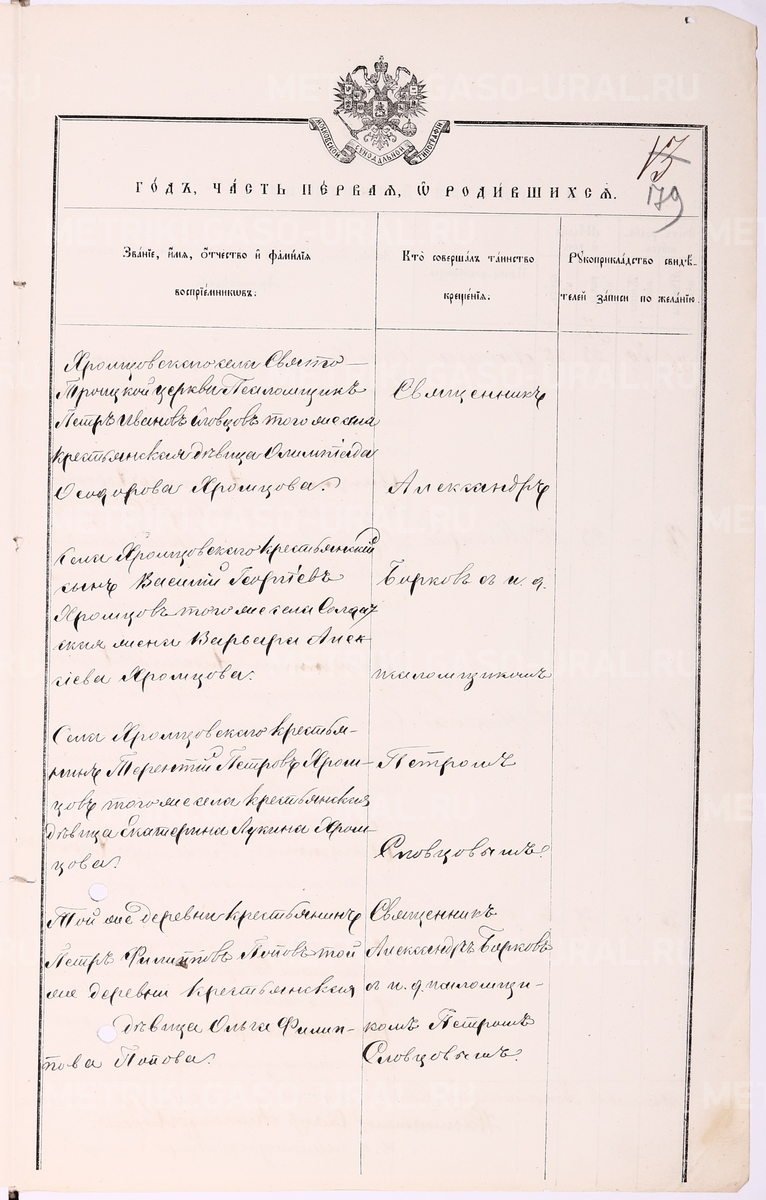 МОСКОВСКОЙ СѴНОДАЛЬНОЙ ТИПОГРАФІИ
13
179
ГО́ДЪ, ЧА́СТЬ ПЕ́РВАЯ, Ѽ РОДИ́ВШИХСЯ.
Зва́ніе, и́мя, о́тчество и фами́лія
воспріе́мниковъ:
Кто̀ соверша́лъ та́инство
креще́нія.
Рꙋкоприкла́дство свидѣ́-
телей за́писи по жела́нію.
Хромцовскаго села Свято-
Троицкой церкви Псаломщикъ
Петръ Ивановъ Словцовъ того же села
крестьянская дѣвица Олимпіада
Ѳеодорова Хромцова.
Священникъ
Александръ
Села Хромцовскаго крестьянскій
сынъ Василій Георгіевъ
Хромцовъ того же села Солдат
ская жена Варвара Алек
сіева Хромцова.
Борковъ съ и. д.
псаломщикомъ
Села Хромцовскаго крестья-
нинъ Терентій Петровъ Хром-
цовъ того же села крестьянская
дѣвица Екатерина Лукина Хром-
цова.
Петромъ
Словцовымъ.
Той же деревни крестьянинъ
Петръ Филиповъ Поповъ той
же деревни крестьянская
дѣвица Ольга Филип-
пова Попова.
Священникъ
Александръ Борковъ
съ и. д. псаломщи-
комъ Петромъ
Словцовымъ.
METRIKI.GASO-URAL.RU